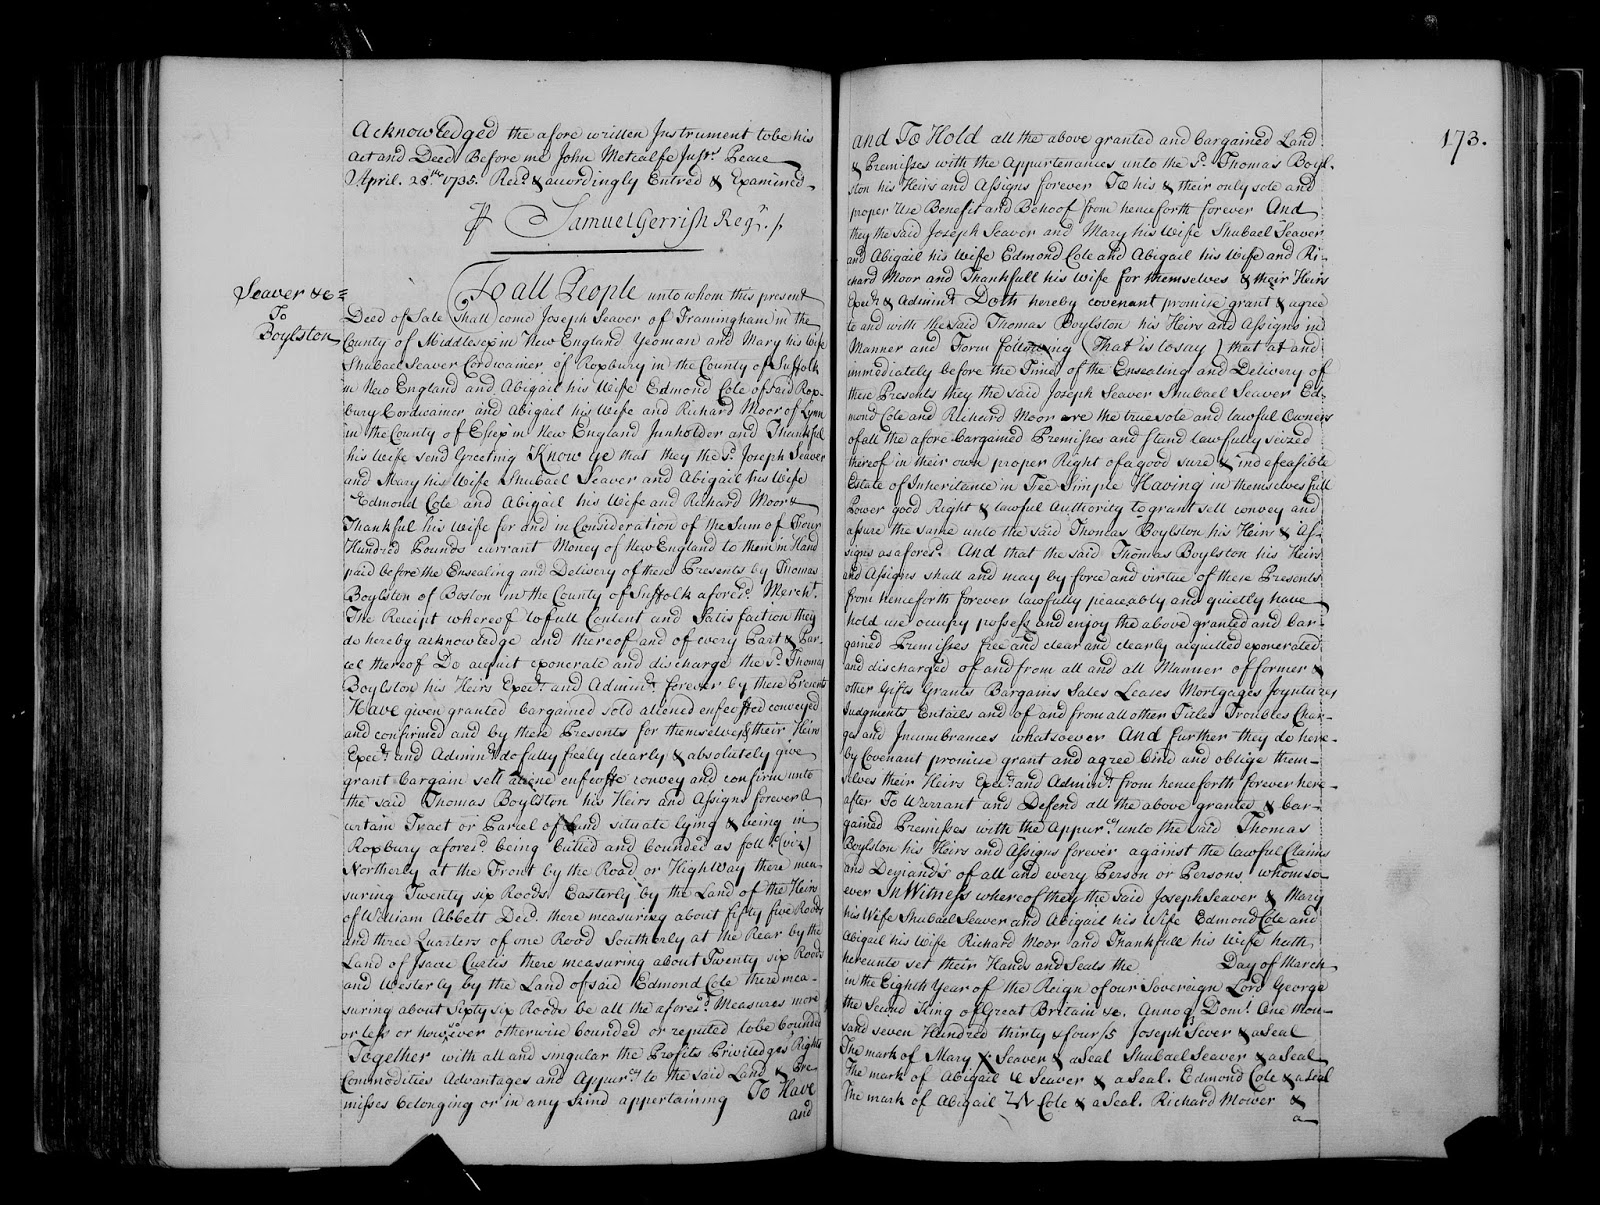 Acknowledged the afore written Instrument tobe his
Act and Deed Before me John Metcalfe Just. Peace
April. 28th 1735. Recd. & accordingly Entred & Examined
Samuel Gerrish Regr.
Seaver &c
To
Boylston
To all People unto whom this present
Deed of Sale Shall come Joseph Seaver of Framingham in the
County of Middlesex in New England Yeoman and Mary his Wife
Shubael Seaver Cordwainer of Roxbury in the County of Suffolk
in New England and Abigail his Wife Edmond Cole of said Rox-
bury Cordwainer and Abigail his Wife and Richard Moor of Lynn
in the County of Essex in New England Innholder and Thankful
his Wife send Greeting Know ye that they the sd. Joseph Seaver
and Mary his Wife Shubael Seaver and Abigail his Wife
Edmond Cole and Abigail his Wife and Richard Moor &
Thankful his Wife for and in Consideration of the Sum of Four
Hundred Pounds currant Money of New England to them in Hand
paid before the Ensealing and Delivery of these Presents by Thomas
Boylston of Boston in the County of Suffolk aforesd. Mercht.
The Receipt whereof to full Content and Satisfaction they
do hereby acknowledge and thereof and of every Part & Par-
cel thereof Do acquit exonerate and discharge the sd. Thomas
Boylston his Heirs Execrs. and Adminrs. forever by these Presents
Have given granted bargained sold aliened enfeoffed conveyed
and confirmed and by these Presents for themselves their Heirs
Execrs. and Adminrs. do fully freely clearly & absolutely give
grant bargain sell aliene enfeoffe convey and confirm unto
the said Thomas Boylston his Heirs and Assigns forever A
certain Tract or Parcel of Land situate lying & being in
Roxbury aforesd. being butted and bounded as foll (viz)
Northerly at the Front by the Road or HighWay there mea
suring Twenty six Roods Easterly by the Land of the Heirs
of William Abbett Decd. there measuring about fifty five Roods
and three Quarters of one Rood Southerly at the Rear by the
Land of Isaac Curtis there measuring about Twenty six Roods
and Westerly by the Land of said Edmond Cole there mea-
suring about Sixty six Roods be all the aforesd. Measures more
or less or howsoever otherwise bounded or reputed to be bounded
Together with all and singular the Profits Priviledges Rights
Commodities Advantages and Appurces to the said Land & Pre
misses belonging or in any kind appertaining To Have
and
173.
and To Hold all the above granted and bargained Land
& Premisses with the Appurtenances unto the sd. Thomas Boyl-
ston his Heirs and Assigns forever To his & their only sole and
proper Use Benefit and Behoof from henceforth forever And
they the said Joseph Seaver and Mary his Wife Shubael Seaver
and Abigail his Wife Edmond Cole and Abigail his Wife and Ri-
chard Moor and Thankfull his Wife for themselves & their Heirs
Execrs. & Adminrs. Doth hereby covenant promise grant & agree
to and with the said Thomas Boylston his Heirs and Assigns in
Manner and Form following (That is to say) that at and
immediately before the Time of the Ensealing and Delivery of
these Presents they the said Joseph Seaver Shubael Seaver Ed-
mond Cole and Richard Moor are the true sole and lawful Owners
of all the afore bargained Premisses and stand lawfully seized
thereof in their own proper Right of a good sure & indefeasible
Estate of Inheritance in Fee Simple Having in themselves full
Power good Right & lawful Authority to grant sell convey and
assure the same unto the said Thomas Boylston his Heirs & As-
signs as aforesd. And that the said Thomas Boylston his Heirs
and Assigns shall and may by force and virtue of these Presents
from henceforth forever lawfully peaceably and quietly have
hold use occupy possess and enjoy the above granted and bar-
gained Premisses free and clear and clearly acquitted exonerated
and discharged of and from all and all Manner of former &
other Gifts Grants Bargains Sales Leases Mortgages Joyntures
Judgments Entails and of and from all other Titles Troubles Char-
ges and Incumbrances whatsoever And further they do here-
by Covenant promise grant and agree bind and oblige them-
selves their Heirs Execrs. and Adminrs. from henceforth forever here-
after To Warrant and Defend all the above granted & bar-
gained Premisses with the Appurces unto the said Thomas
Boylston his Heirs and Assigns forever against the lawful Claims
and Demands of all and every Person or Persons whomso-
ever In Witness whereof they the said Joseph Seaver & Mary
his Wife Shubael Seaver and Abigail his Wife Edmond Cole and
Abigail his Wife Richard Moor and Thankfull his Wife hath
hereunto set their Hands and Seals the Day of March
in the Eighth Year of the Reign of our Sovereign Lord George
the Second King of Great Britain &c. Annoq Dom! One thou-
sand seven Hundred thirty & four/5 Joseph Sever & a Seal
The mark of Mary X Seaver & a Seal Shubael Seaver & a Seal
The mark of Abigail Seaver & a Seal. Edmond Cole & a Seal
The mark of Abigail Cole & a Seal. Richard Mower &
a